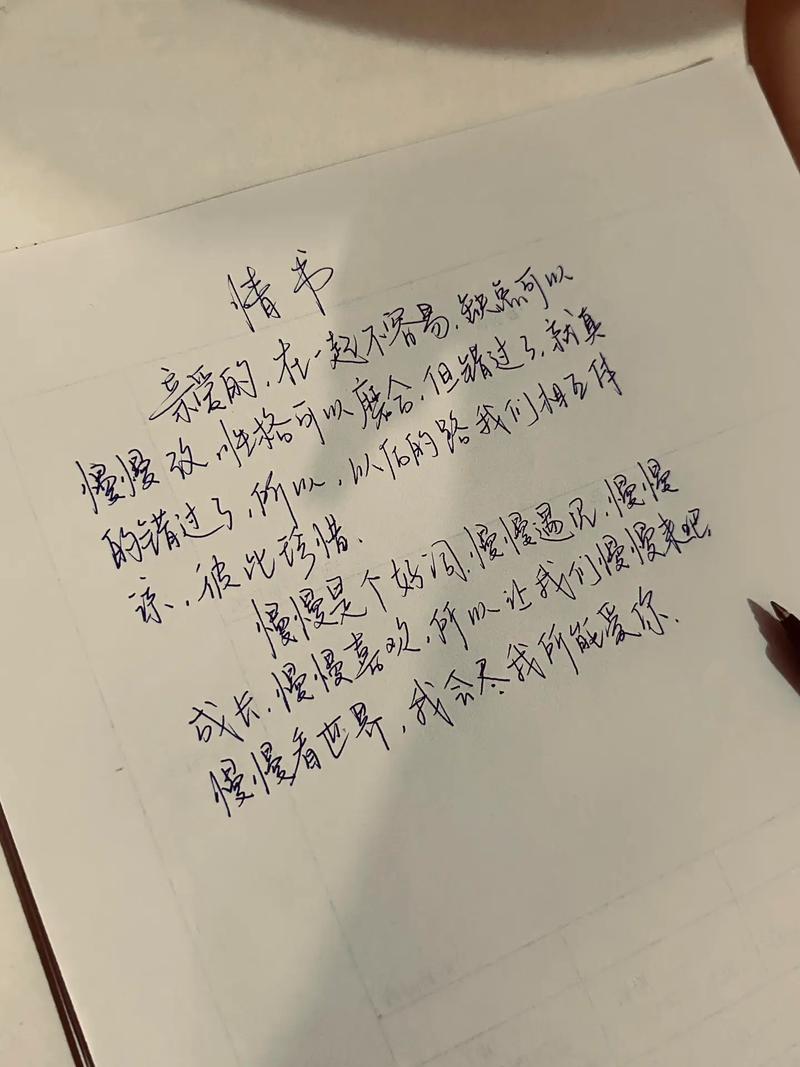 情书
亲爱的,在一起不容易,缺点可以
慢慢改,性格可以磨合,但错过了,就真
的错过了,所以,以后的路我们相互体
谅、彼此珍惜.
慢慢是个好词,慢慢遇见,慢慢
成长,慢慢喜欢,所以让我们慢慢来吧,
慢慢看世界,我会尽我所能爱你.